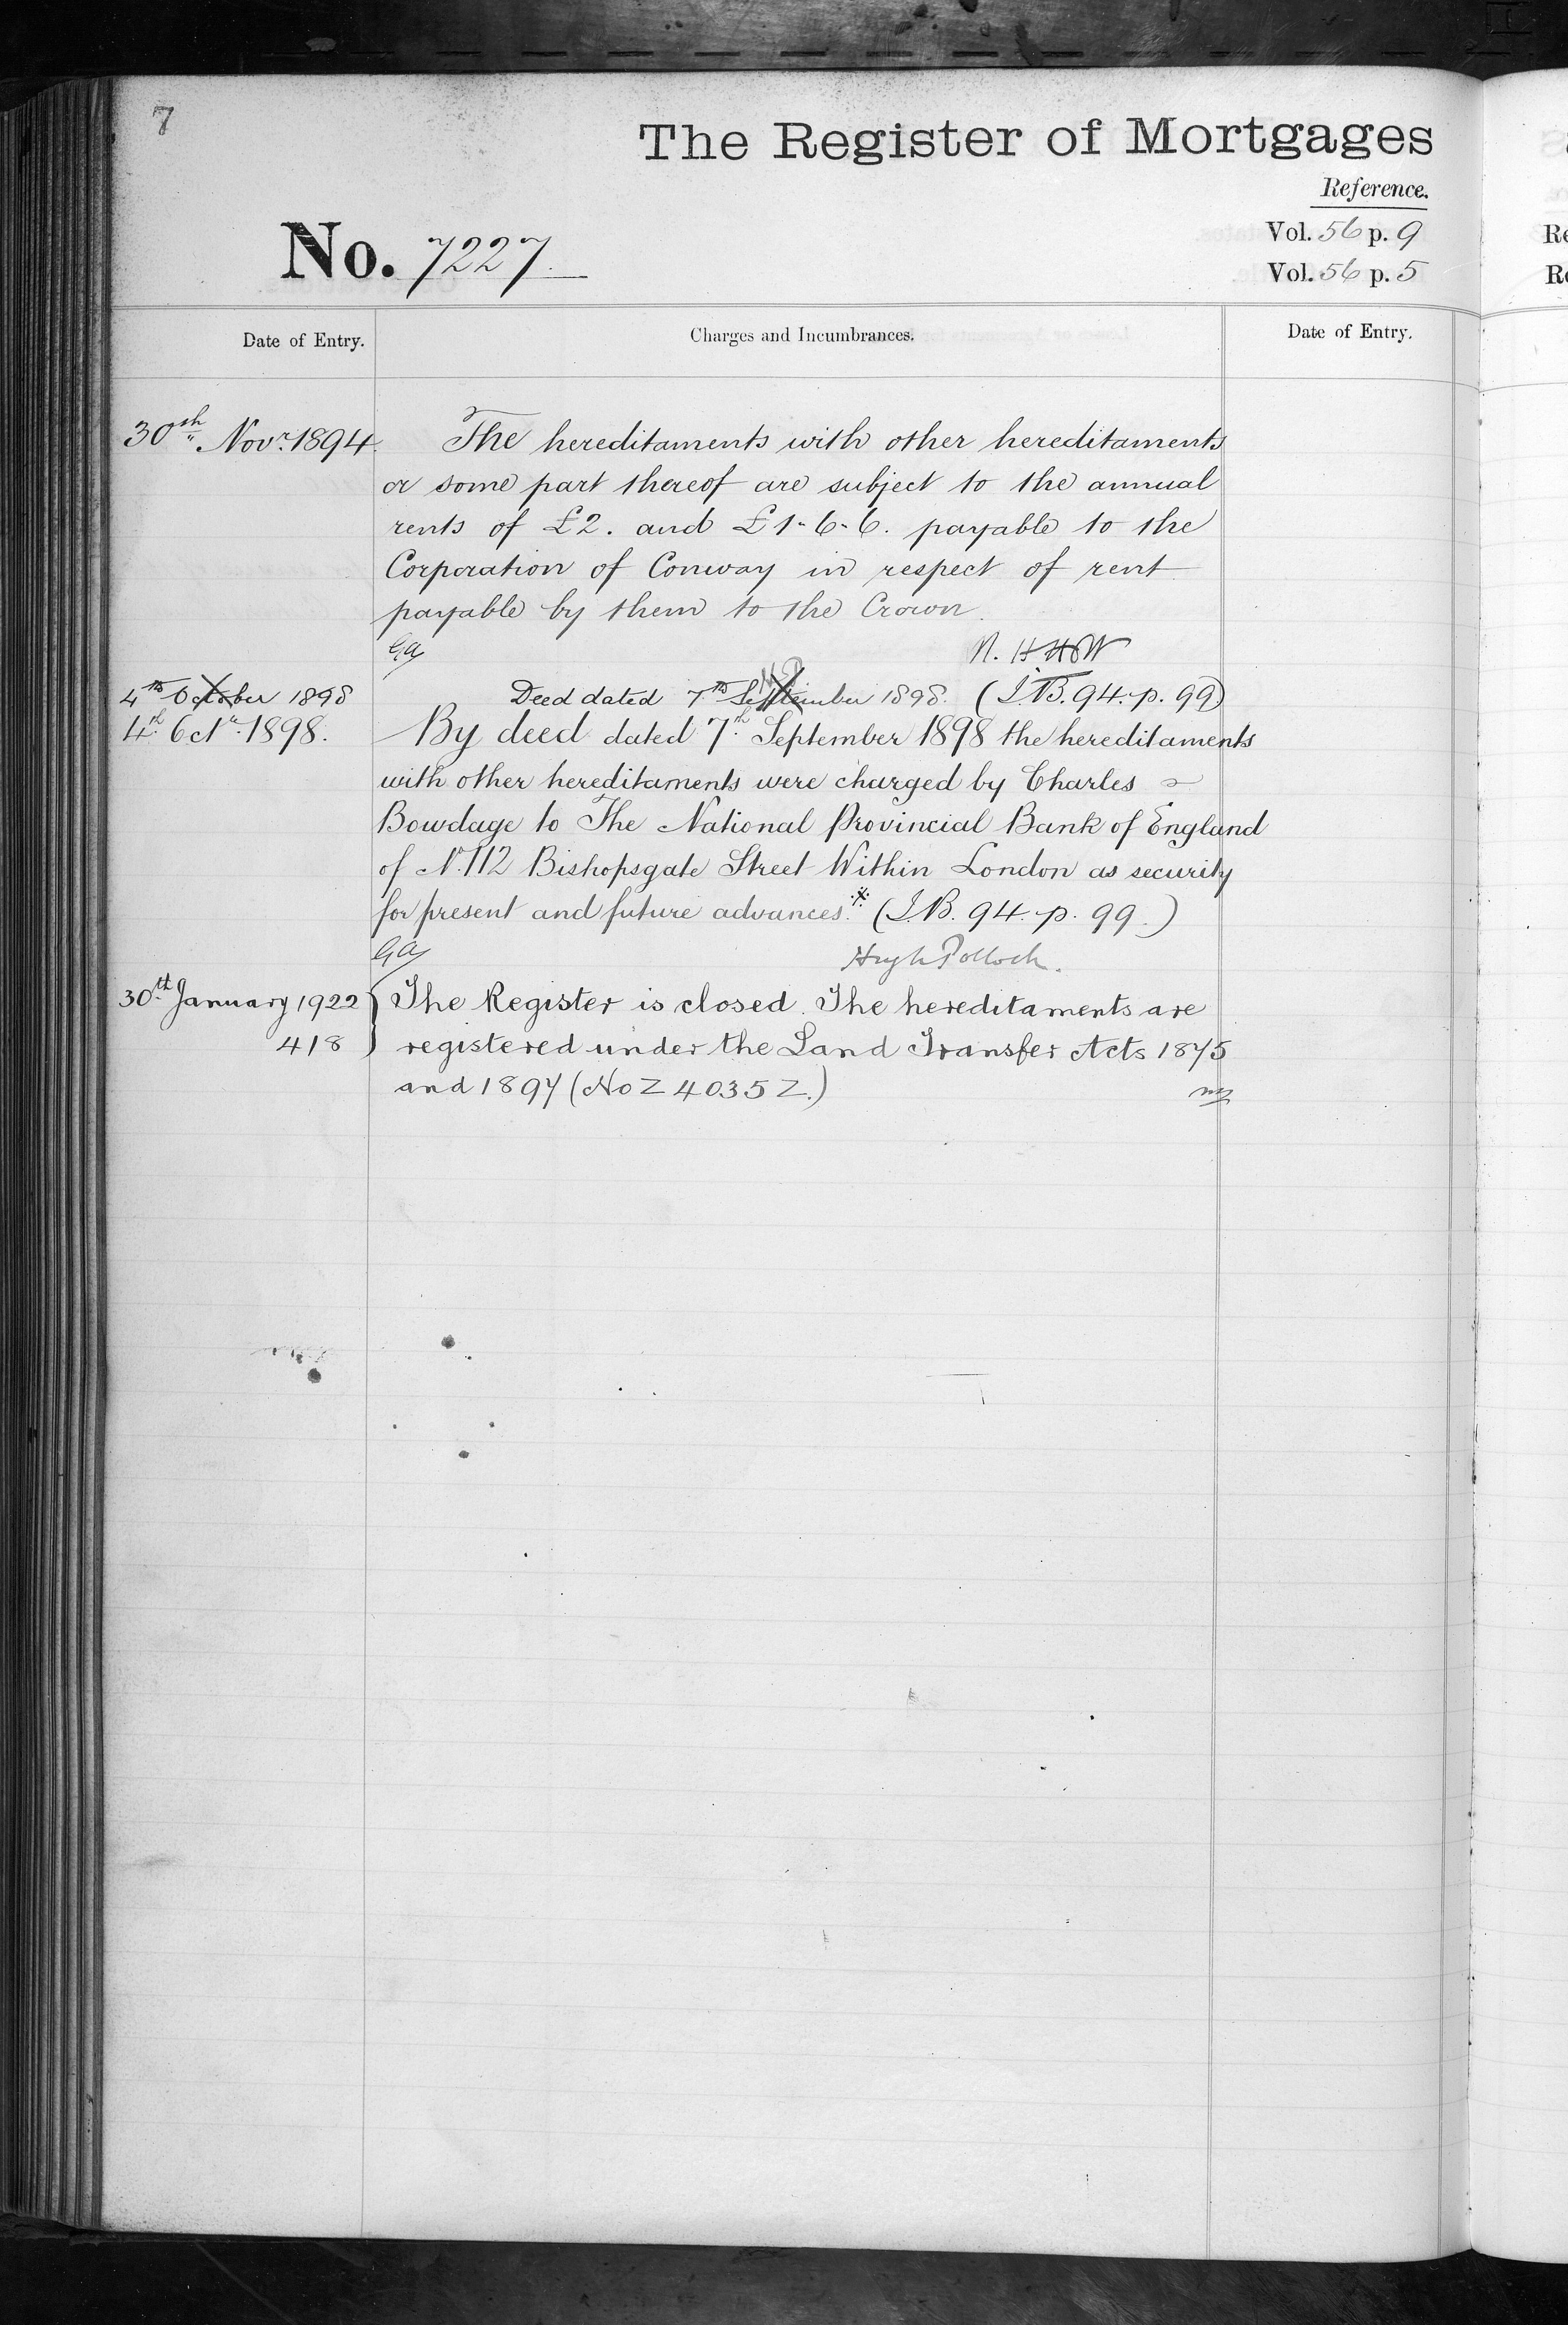 7
The Register of Mortgages
Reference.
No. 7227.
Vol. 56 p. 9
Vol. 56 p. 5
Date of Entry.
Charges and Incumbrances.
Date of Entry.
30th Novr. 1894.
The hereditaments with other hereditaments
or some part thereof are subject to the annual
rents of £2. and £1-6-6. payable to the
Corporation of Conway in respect of rent
payable by them to the Crown.
4th October 1898
Deed dated 7th September 1898. (I.B. 94. p. 99)
4th. Octr. 1898.
By deed dated 7th. September 1898 the hereditaments
with other hereditaments were charged by Charles
Bowdage to The National Provincial Bank of England
of No. 112 Bishopsgate Street Within London as security
for present and future advances. (I.B. 94. p. 99.)
Hugh Pollock.
30th January 1922
The Register is closed. The hereditaments are
418
registered under the Land Transfer Acts 1875
and 1897 (No Z 4035 Z.)